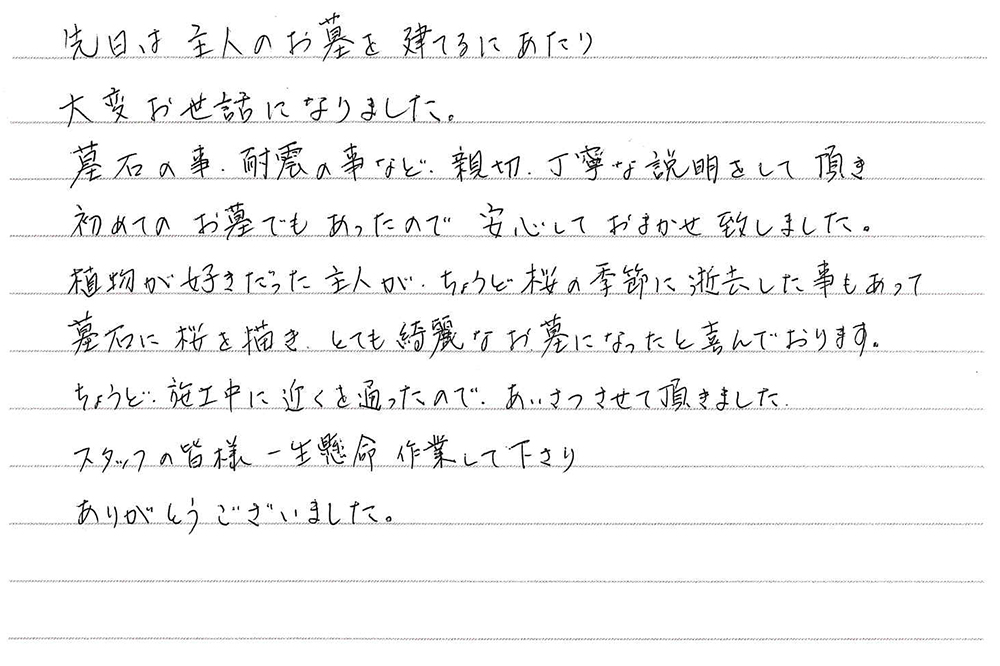 先日は 主人のお墓を 建てるにあたり
大変お世話になりました。
墓石の事、耐震の事など、親切、丁寧な説明をして頂き
初めての お墓でもあったので 安心して おまかせ致しました。
植物が好きだった主人が、ちょうど桜の季節に逝去した事もあって
墓石に桜を描き、とても綺麗なお墓になったと喜んでおります。
ちょうど、施工中に近くを通ったので、あいさつさせて頂きました、
スタッフの皆様一生懸命作業して下さり
ありがとうございました。